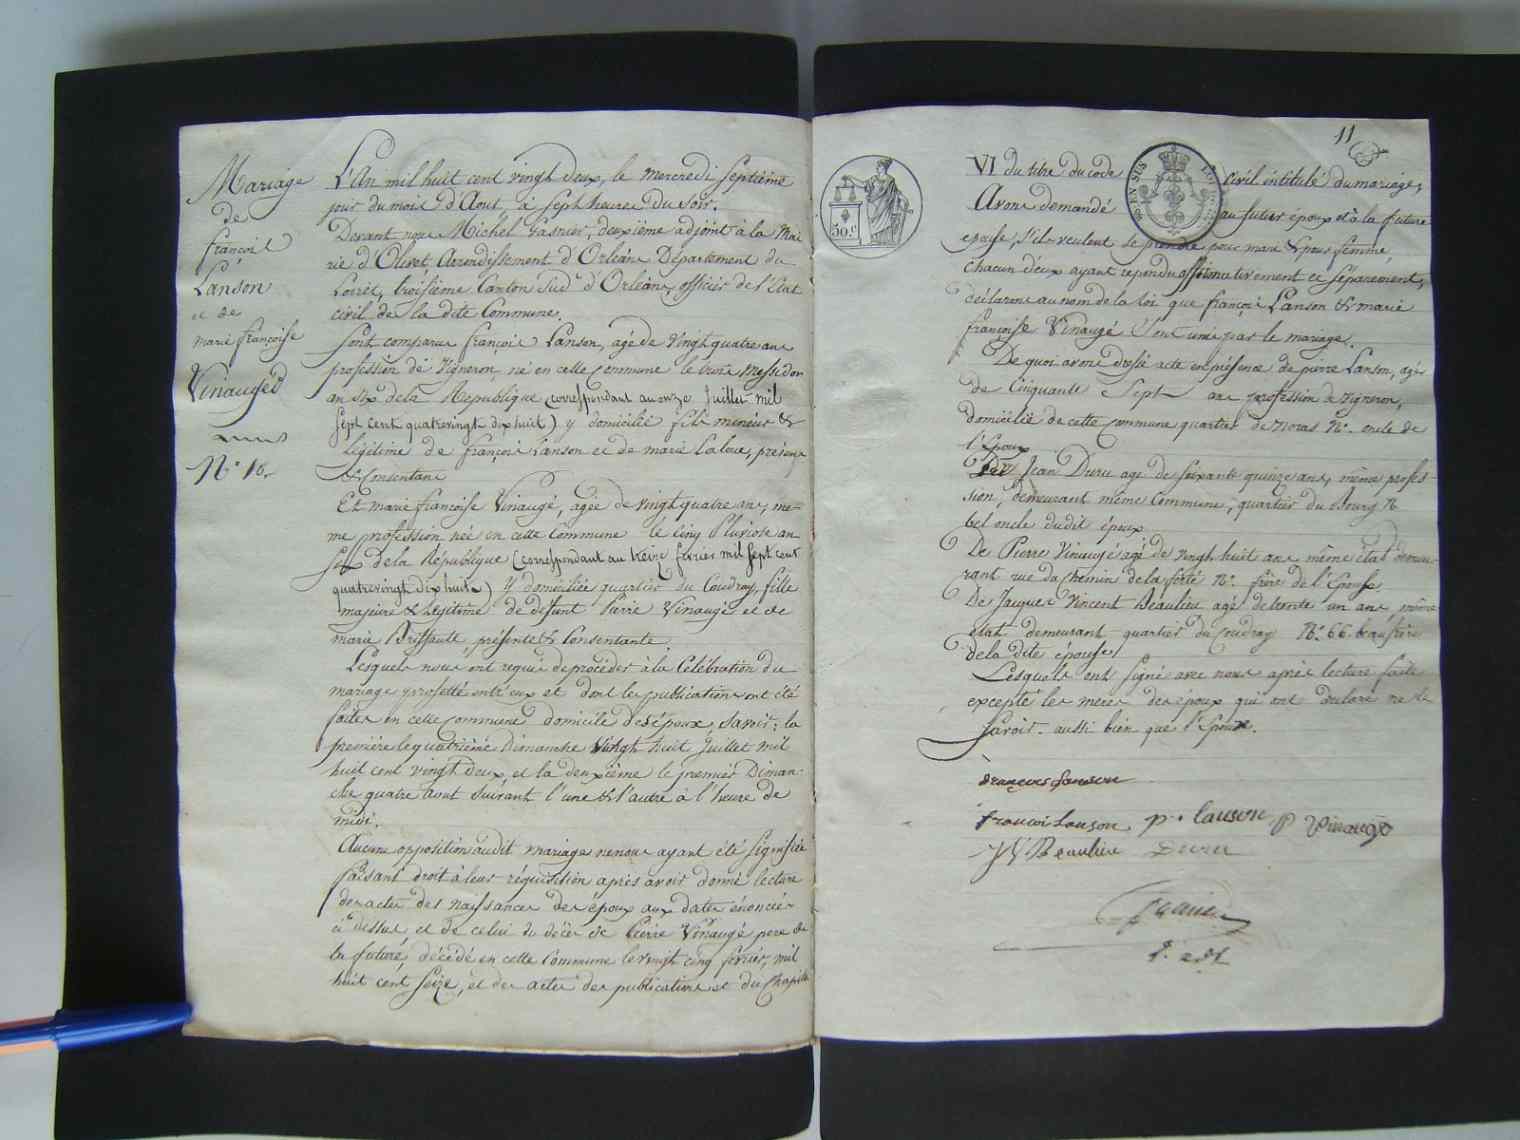 Mariage
de
françois
Lanson
et de
marie françoise
Vinauged
N.° 16.
L'An mil huit cent vingt deux, le mercredi Septième
jour du mois d'Aout, à Sept heures du Soir.
Devant nous Michel Gasnier, deuxième adjoint à la Mai
rie d'Olivet, Arrondissement d'Orléans Département du
Loiret, troisième Canton Sud d'Orléans, officier de l'état
civil de la dite Commune.
Sont comparus françois Lanson, agé de vingt quatre ans
profession de Vigneron, né en cette commune le treize Messidor
an Six de la République (correspondant au onze Juillet mil
Sept cent quatrevingt dix huit) y domicilié fils mineur &
légitime de françois Lanson et de marie Laloue, présens
& Consentans
Et marie françoise Vinaugé, agée de vingt quatre ans, me-
me profession née en cette Commune le cinq Pluviose an
Six de la République (correspondant au treize février mil Sept cent
quatrevingt dix huit) y domiciliée quartier du Coudray, fille
majeure & légitime de défunt Pierre Vinaugé et de
marie Briffault, présente & Consentante
Lesquels nous ont requis de procéder à la Célébration du
mariage projetté entr'eux et dont les publications ont été
faites en cette commune domicile des époux, Savoir: la
première le quatrième Dimanche Vingt huit Juillet mil
huit cent vingt deux, et la deuxième le premier Diman-
che quatre aout Suivant l'une & l'autre à l'heure de
midi.
Aucune opposition audit mariage ne nous ayant été Signifiée
faisant droit à leur réquisition après avoir donné lecture
des actes des naissances des époux aux dates énoncées
ci dessus et de celui de décès de Pierre Vinaugé pere de
la future, décédé en cette Commune le vingt cinq février, mil
huit cent Seize, et des actes des publications et du Chapitre
11
30.c
VI du titre du code civil intitulé du mariage,
Avons demandé au futur époux et à la future
epouse S'ils veulent se prendre pour mari & pour femme,
chacun d'eux ayant repondu affirmativement et Séparement,
déclarons au nom de la loi que françois Lanson & marie
françoise Vinaugé Sont unis par le mariage.
De quoi avons dressé acte en présence de pierre Lanson, agé
de Cinquante Sept ans profession de vigneron,
domicilié de cette Commune quartier de Noras N.° oncle de
l'Epoux
De Jean Duru agé de Soixante quinze ans, même profes-
sion, demeurant même Commune, quartier du Bourg N.°
bel oncle dudit époux
De Pierre Vinaugé agé de vingt huit ans même état demeu-
rant rue du Chemin de la ferté N.° frère de l'Epouse
De Jacques Vincent Beaulieu agé de trente un ans, même
état demeurant quartier du Coudray N.° 66. beaufrère
de la dite épouse
Lesquels ont Signé avec nous après lecture faite
excepté les meres des époux qui ont declaré ne le
Savoir. aussi bien que l'Epouse.
françois Lanson
francoi Lanson. p. lanson P vinaugé
JV Beaulieu Duru
Gasnier
2.e adj.t